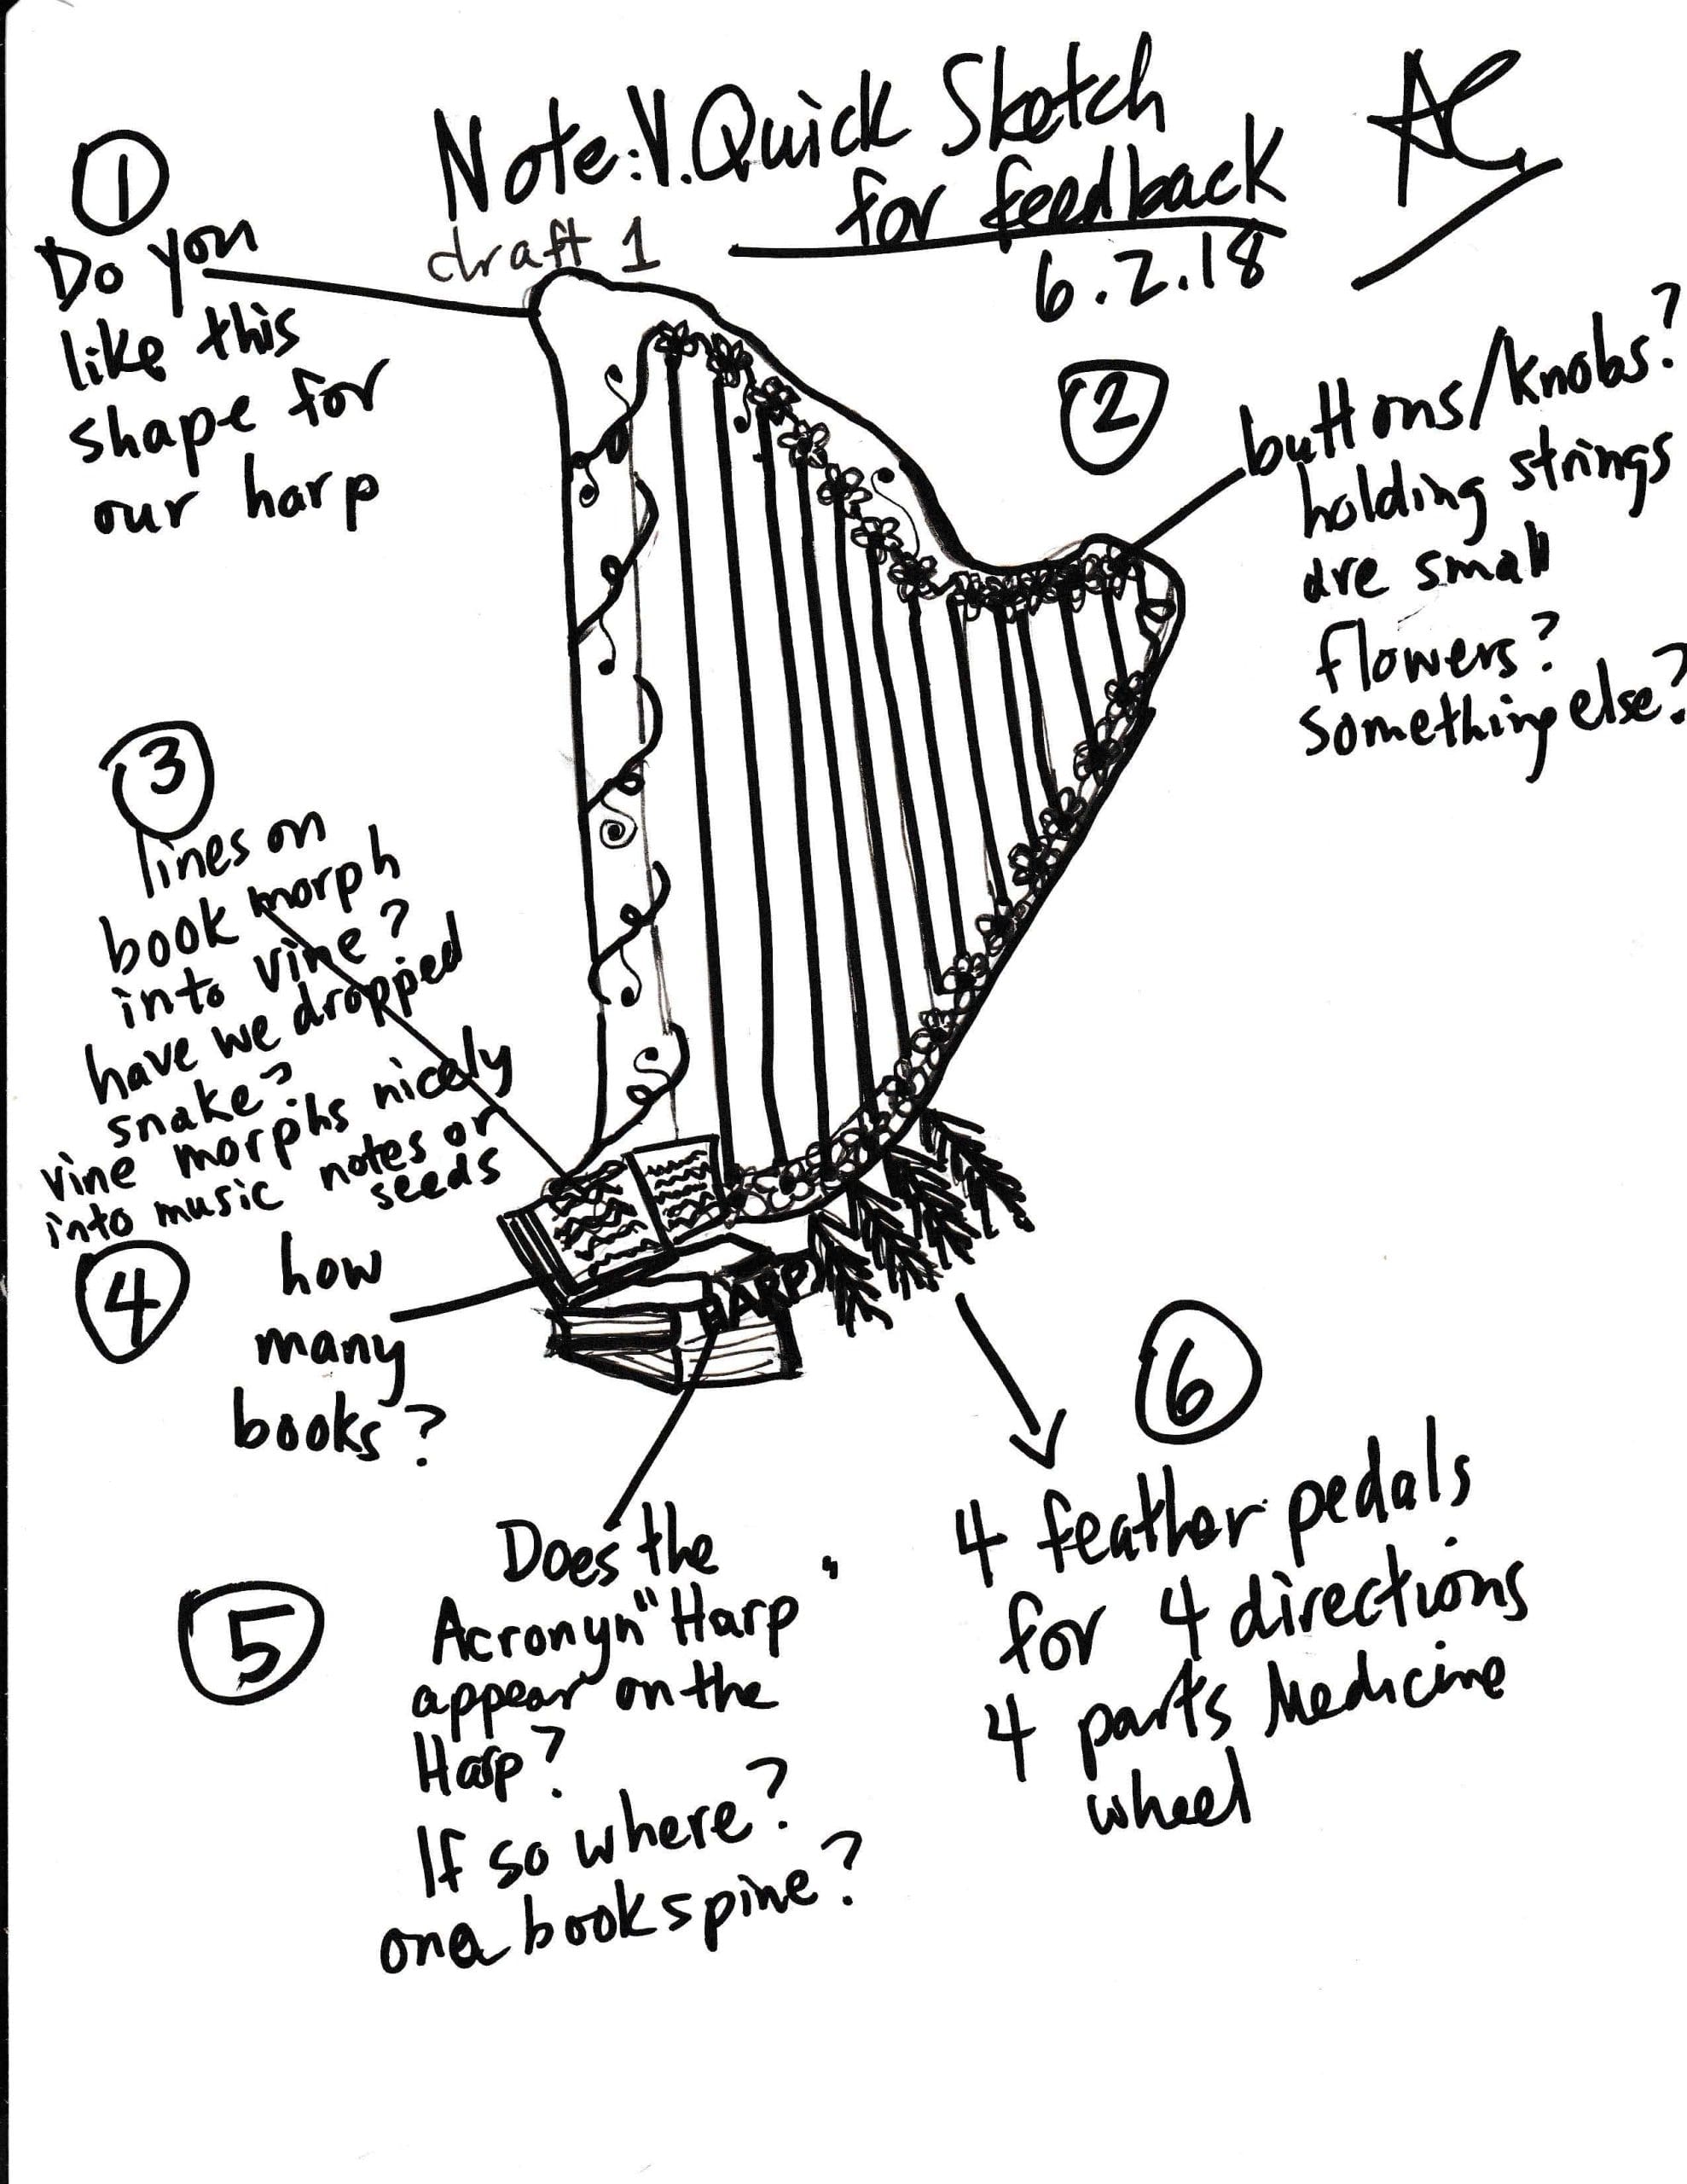 Note: V. Quick Sketch
for feedback
draft 1
6.2.18
AC
1
Do you
like this
shape for
our harp
2
buttons/knobs?
holding strings
are small
flowers?
something else?
3
lines on
book morph
into vine?
have we dropped
snake?
vine morphs nicely
into music notes or
seeds
4
how
many
books?
HARP
5
Does the
Acronyn "Harp"
appear on the
Harp?
If so where?
on a book spine?
6
4 feather pedals
for 4 directions
4 parts Medicine
wheel